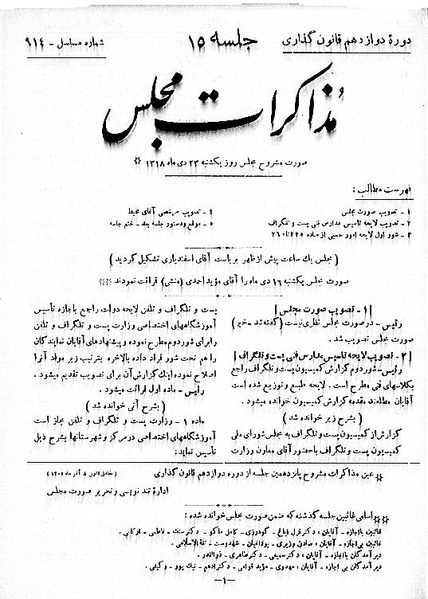 دورهٔ دوازدهم قانون گذاری
جلسه ۱۵
شماره مسلسل - ۹۱۴
مذاکرات مجلس
صورت مشروح مجلس روز یکشنبه ۲۳ دی ماه ۱۳۱۸
فهرست مطالب:
۱ - تصویب صورت مجلس
۲ - تصویب لایحه تاسیس مدارس فنی پست و تلگراف
۳ - شور اول لایحه امور حسبی از ماده ۲۲۵ تا ۲۶۰
۴ - تصویب مرخصی آقای محیط
۵ - موقع و دستور جلسه بعد - ختم جلسه
( مجلس یك ساعت پیش از ظهر بریاست آقای اسفندیاری تشکیل گردید )
صورت مجلس یکشنبه ۱۶ دی ماه را آقای مؤید احمدی (منشی) قرائت نمودند
[ ۱ - تصویب صورت مجلس ]
رئیس - در صورت مجلس نظری نیست (گفته شد - خیر)
صورت مجلس تصویب شد .
[ ۲ - تصویب لایحه تاسیس مدارس فنی پست و تلگراف ]
رئیس - شور دوم گزارش کمیسیون پست و تلگراف راجع
بکلاسهای فنی مطرح است . لایحه طبع و توزیع شده است
آقایان مطالعه مقدمه گزارش کمیسیون خوانده میشود .
( بشرح زیر خوانده شد )
گزارش از کمیسیون پست و تلگراف به مجلس شورای ملی
کمیسیون پست و تلگراف با حضور آقای معاون وزارت
پست و تلگراف و تلفن لایحه دولت راجع باجازه تأسیس
آموزشگاههای اختصاصی وزارت پست و تلگراف و تلفن
را برای شور دوم مطرح نموده و پیشنهادهای آقایان نمایندگان
را هم تحت شور قرار داده بالاخره بترتیب زیر مواد آنرا
اصلاح نموده اینك گزارش آن برای تصویب تقدیم میشود .
رئیس - ماده اول قرائت میشود .
( بشرح آتی خوانده شد )
ماده ۱ - وزارت پست و تلگراف و تلفن مجاز است
آموزشگاههای اختصاصی در مرکز و شهرستانها بشرح ذیل
تأسیس نماید :
عین مذاکرات مشروح پانزدهمین جلسه از دوره دوازدهم قانون گذاری
اداره تند نویسی و تحریر صورت مجلس
اسامی غائبین جلسه گذشته که ضمن صورت مجلس خوانده شده :
غائبین با اجازه - آقایان :
غائبین بی اجازه - آقایان :
دیر آمدگان با اجازه - آقایان :
دیر آمدگان بی اجازه - آقایان :
- ۱ -